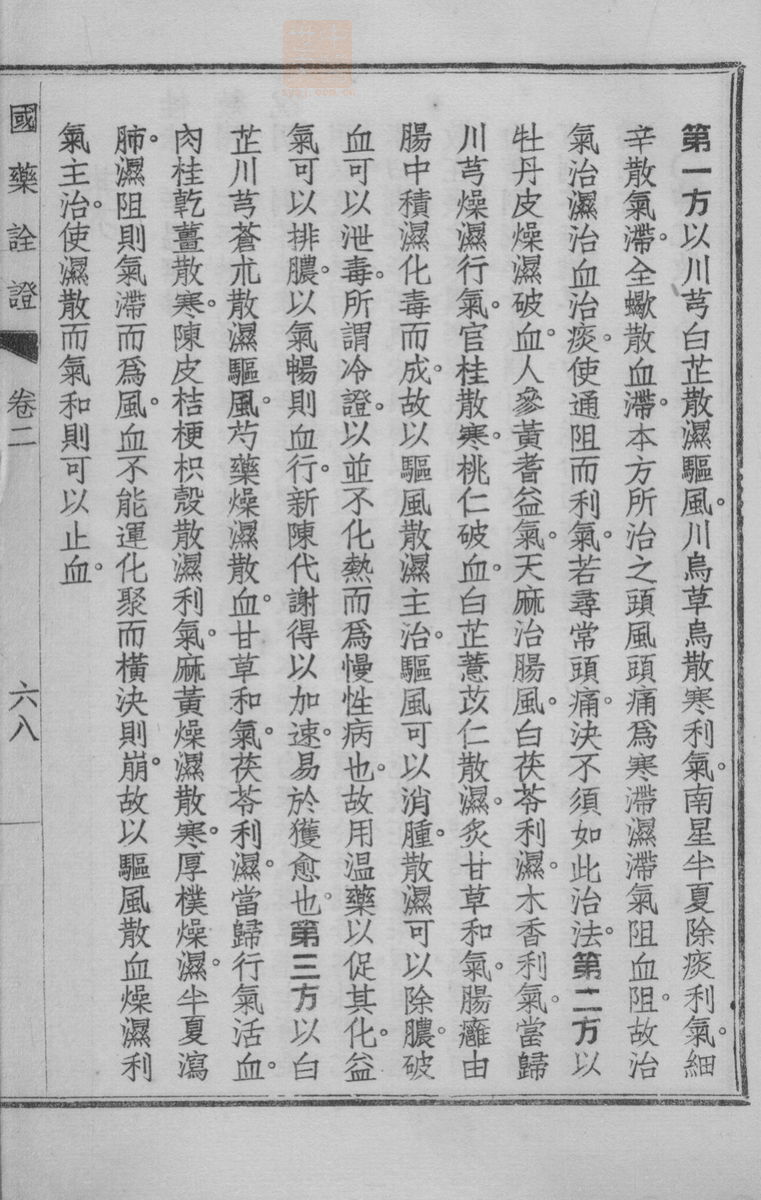 第一方以川芎白芷散濕驅風。川烏草烏散寒利氣。南星半夏除痰利氣。細
辛散氣滯。全蠍散血滯。本方所治之頭風頭痛爲寒滯濕滯氣阻血阻。故治
氣治濕治血治痰。使通阻而利氣。若尋常頭痛。決不須如此治法。第二方以
牡丹皮燥濕破血。人參黃耆益氣。天麻治腸風。白茯苓利濕。木香利氣。當歸
川芎燥濕行氣。官桂散寒。桃仁破血。白芷薏苡仁散濕。炙甘草和氣。腸癰由
腸中積濕化毒而成。故以驅風散濕主治。驅風可以消腫。散濕可以除膿。破
血可以泄毒。所謂冷證。以並不化熱而爲慢性病也。故用温藥以促其化。益
氣可以排膿。以氣暢則血行。新陳代謝得以加速。易於獲愈也。第三方以白
芷川芎蒼朮散濕驅風。芍藥燥濕散血。甘草和氣。茯苓利濕。當歸行氣活血。
肉桂乾薑散寒。陳皮桔梗枳殼散濕利氣。麻黃燥濕散寒。厚樸燥濕。半夏瀉
肺。濕阻則氣滯而爲風。血不能運化聚而橫決則崩。故以驅風散血燥濕利
氣主治。使濕散而氣和則可以止血。
國藥詮證 卷二 六八